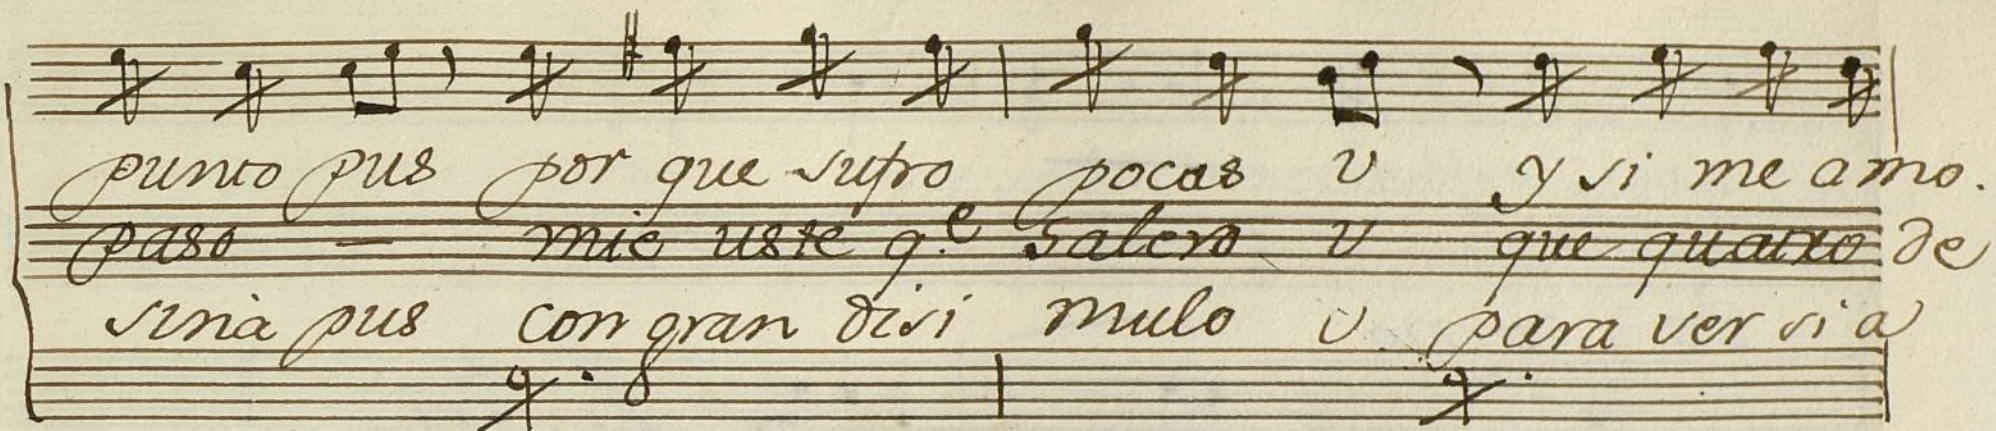 punto pus por que sufro pocas v y si me amo.
paso — mie uste q.e salero v que quatro de
sina pus con gran disi mulo v para ver si a